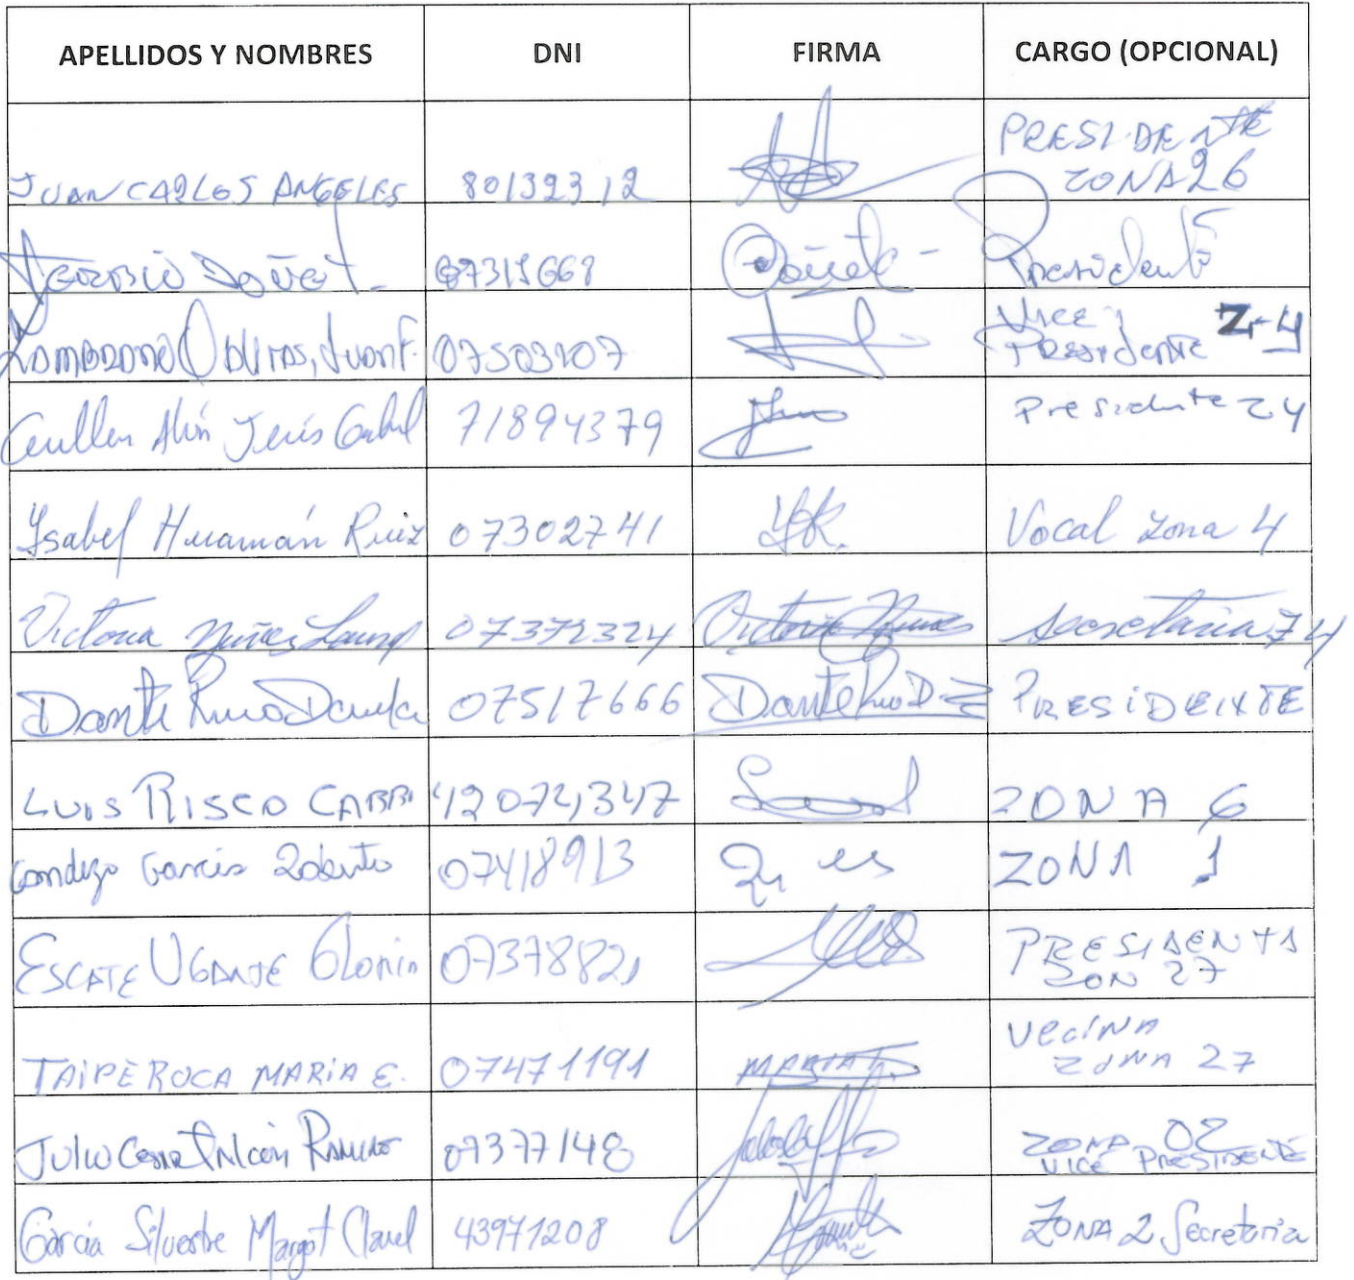 APELLIDOS Y NOMBRES DNI FIRMA CARGO (OPCIONAL)
JUAN CARLOS ANGELES 80132312 PRESIDENTE
ZONA 26
07315668 Presidente
Juan F. 07503107 Vice Presidente Z-4
Jesús 71894379 Presidente Z4
Ysabel Huamán Ruiz 07302741 Vocal zona 4
Victoria Núñez 07372324 Victoria Núñez secretaria Z4
Dante 07517666 Dante PRESIDENTE
LUIS RISCO ZONA 6
García Roberto 07418913 ZONA 1
ESCATE UGARTE Gloria 07378821 PRESIDENTA
ZON 27
TAIPE ROCA MARIA E. 07471191 MARIA VECINA
ZONA 27
Julio Cesar Falcón 07377148 ZONA 02
VICE PRESIDENTE
García Silvestre Margot Clavel 43971208 ZONA 2 Secretaria